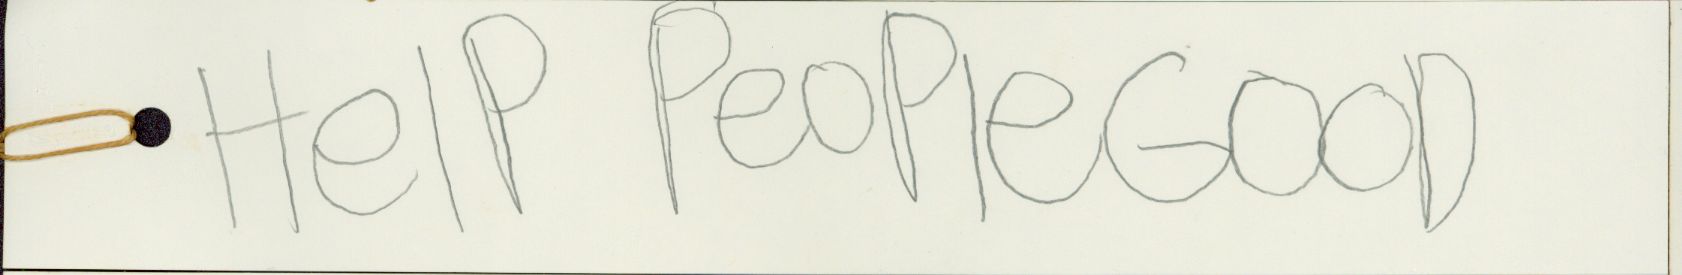 HelP PeoPleGooD